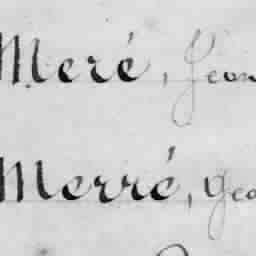 Meré, Jean
Merré, Geo